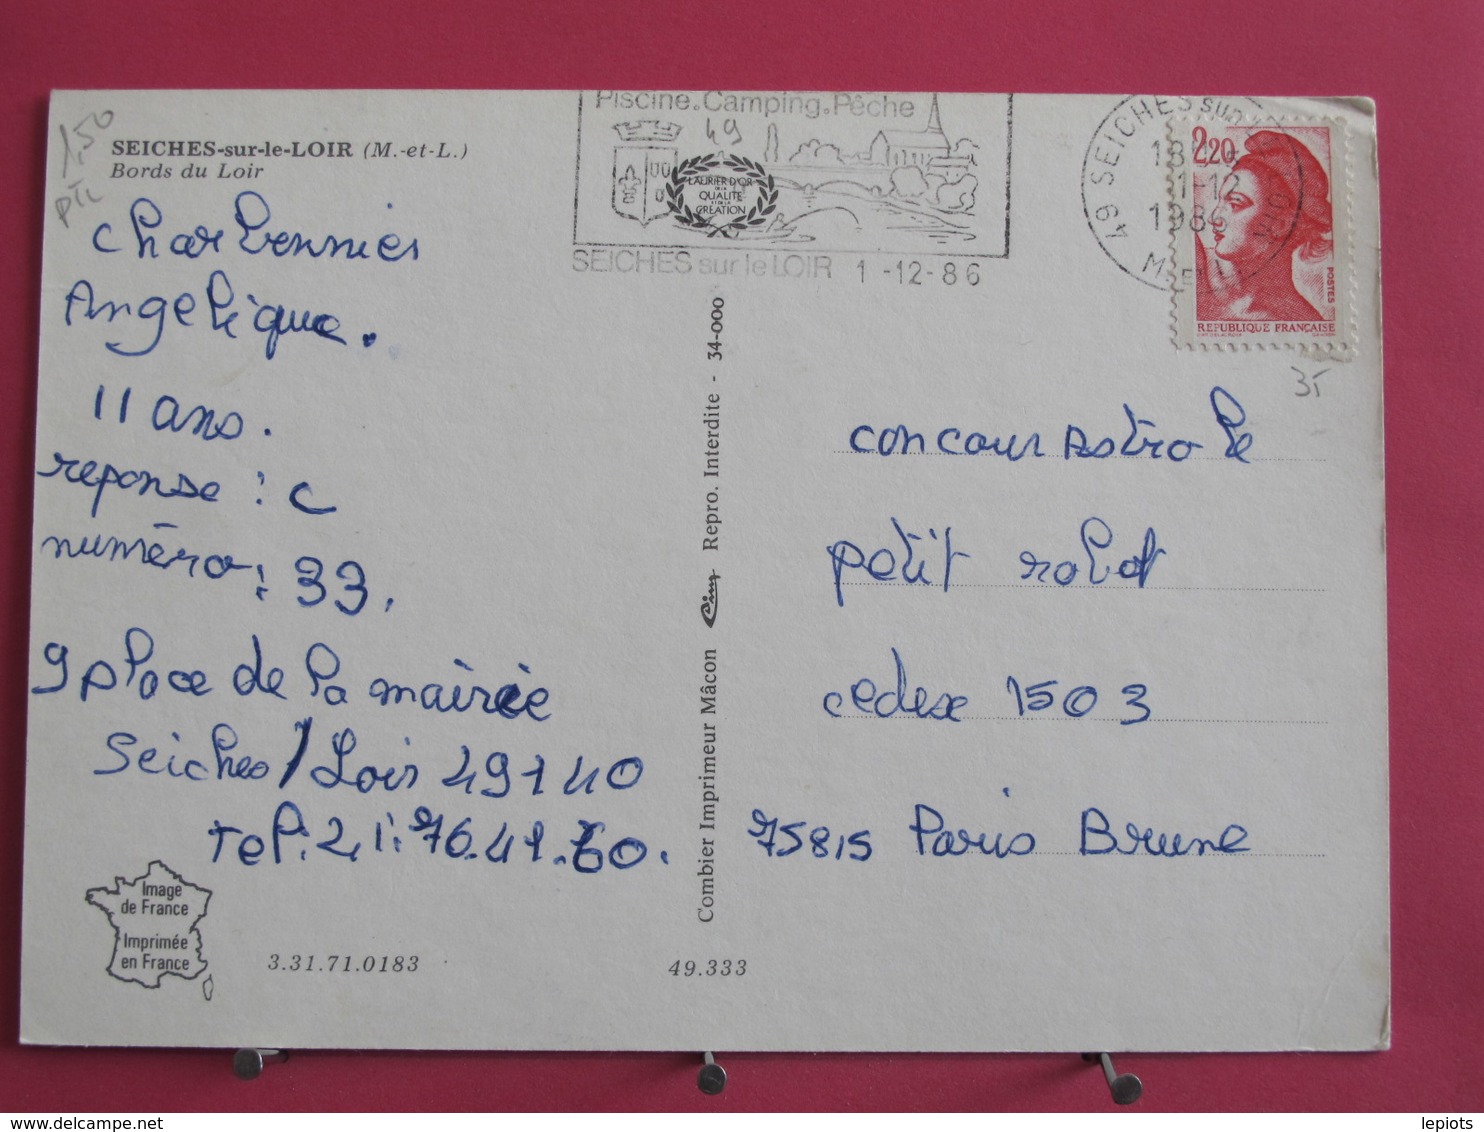 1,50
PTL
SEICHES-sur-le-LOIR (M.-et-L.)
Bords du Loir
Charbonnier
Angelique.
11 ans.
reponse : C
numéro : 33.
9 place de la mairie
Seiches / Loir 49140
Tel: 21.76.41.60.
Image
de France
Imprimée
en France
3.31.71.0183
49.333
Combier Imprimeur Mâcon Cim Repro. Interdite - 34-000
Piscine.Camping.Pêche
49
LAURIER D'OR
DE LA
QUALITE
ET DE LA
CREATION
SEICHES sur le LOIR 1-12-86
49 SEICHES sur LE LOIR
1-12
1986
2,20
POSTES
REPUBLIQUE FRANÇAISE
35
concour Astrole
petit robot
cedex 1503
75815 Paris Brune
lepiots
www.delcampe.net